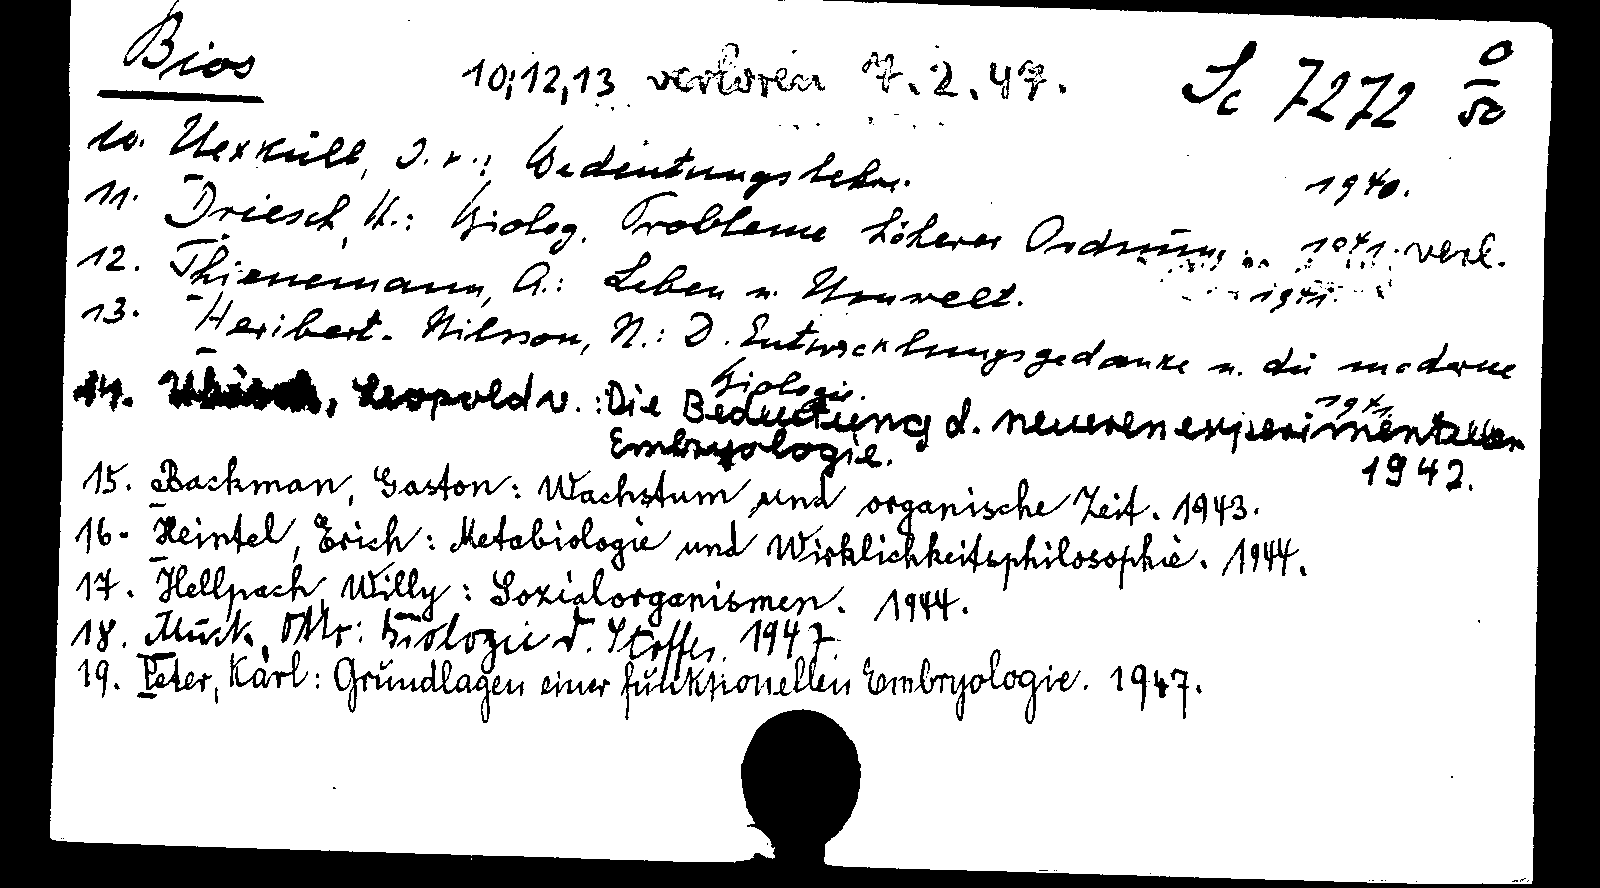 Bios 10;12,13 verloren 7.2.47. Sc 7272 0/50
10. Uexküll, J. v.: Bedeutungslehre. 1940.
11. Driesch, H.: Biolog. Probleme höherer Ordnung. 1941. verl.
12. Thienemann, A.: Leben u. Umwelt. 1941.
13. Heribert-Nilsson, N.: D. Entwicklungsgedanke u. die moderne
Biologie. 1941.
14. Ubisch, Leopold v.: Die Bedeutung d. neueren experimentellen
Embryologie. 1942.
15. Backman, Gaston: Wachstum und organische Zeit. 1943.
16. Heintel, Erich: Metabiologie und Wirklichkeitsphilosophie. 1944.
17. Hellpach, Willy: Sozialorganismen. 1944.
18. Muck, Otto: Biologie d. Stoffes. 1947
19. Peter, Karl: Grundlagen einer funktionellen Embryologie. 1947.